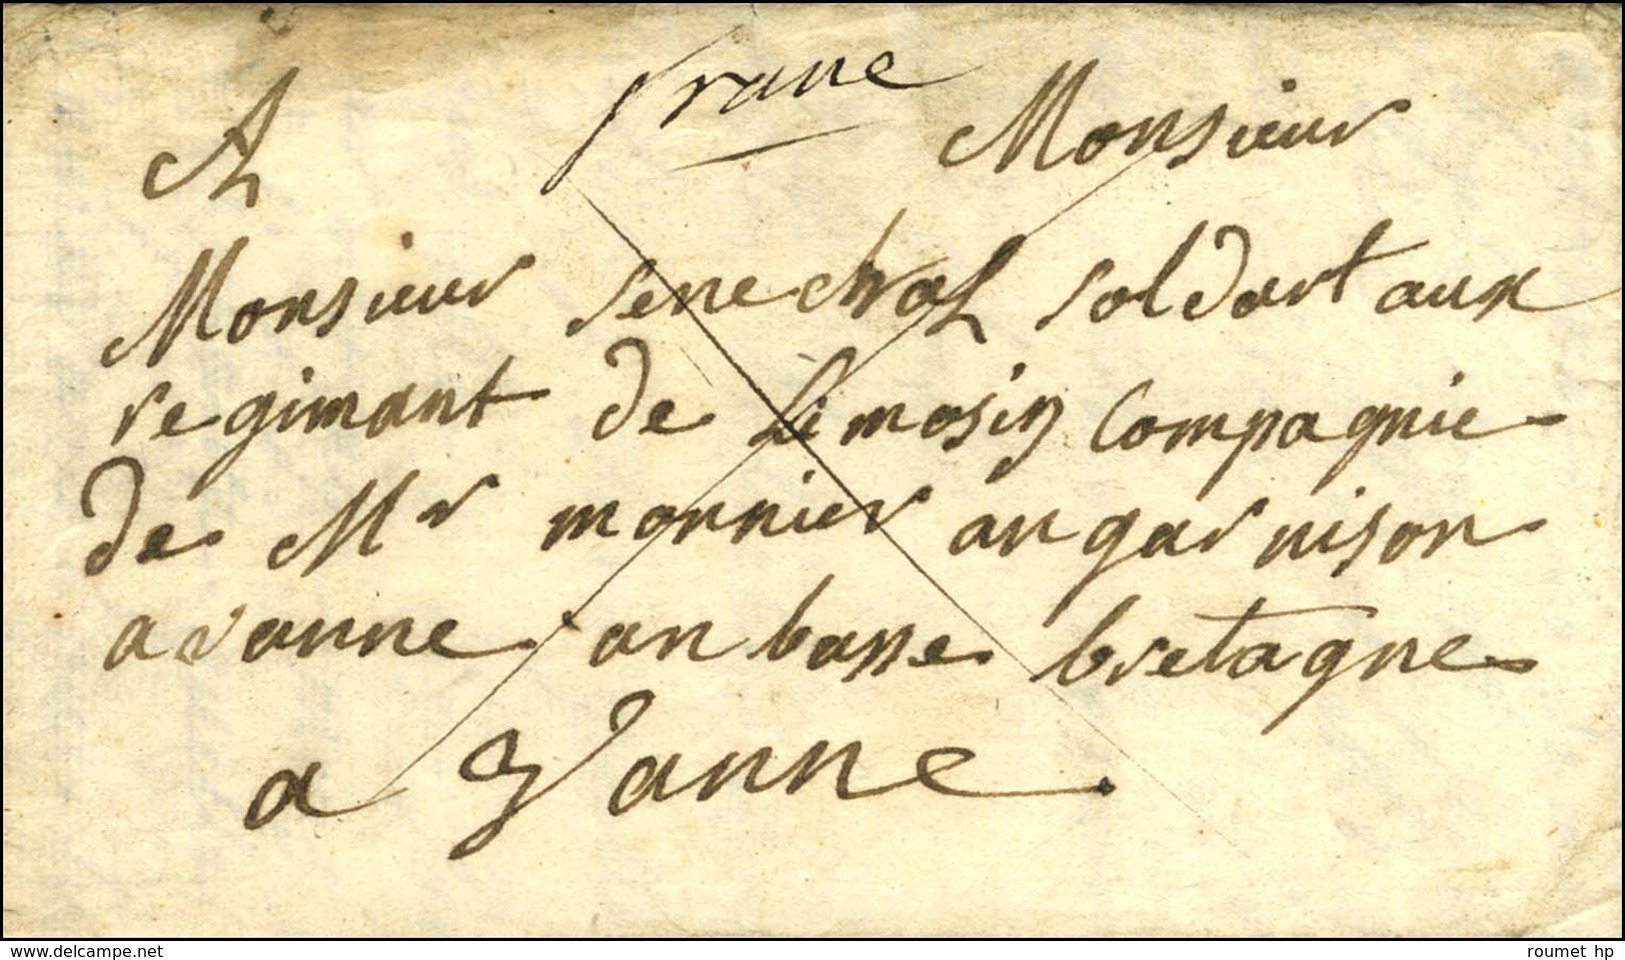 franc
A Monsieur
Monsieur senechal soldart aux
regimant de Limosin Compagnie
de Mr monnier an garnison
a vanne an basse bretagne
a Vanne
www.delcampe.net
roumet hp